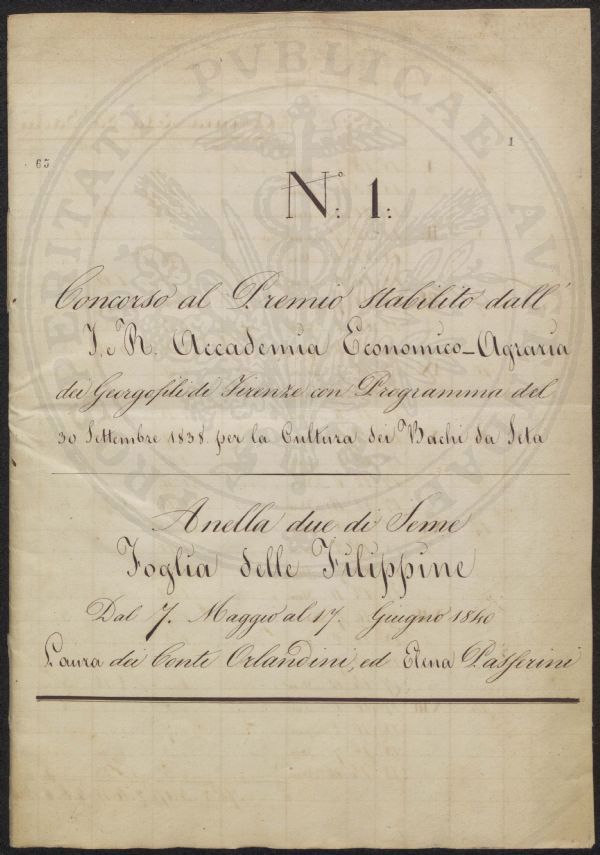 PROSPERITATI PVBLICAE AVGENDAE
1
65
N.º 1:
Concorso al Premio stabilito dall'
I. e R. Accademia Economico-Agraria
dei Georgofili di Firenze con Programma del
30 Settembre 1838 per la Cultura dei Bachi da Seta
Anella due di Seme
Foglia delle Filippine
Dal 7. Maggio al 17. Giugno 1840
Laura dei Conti Orlandini, ed Elena Passerini